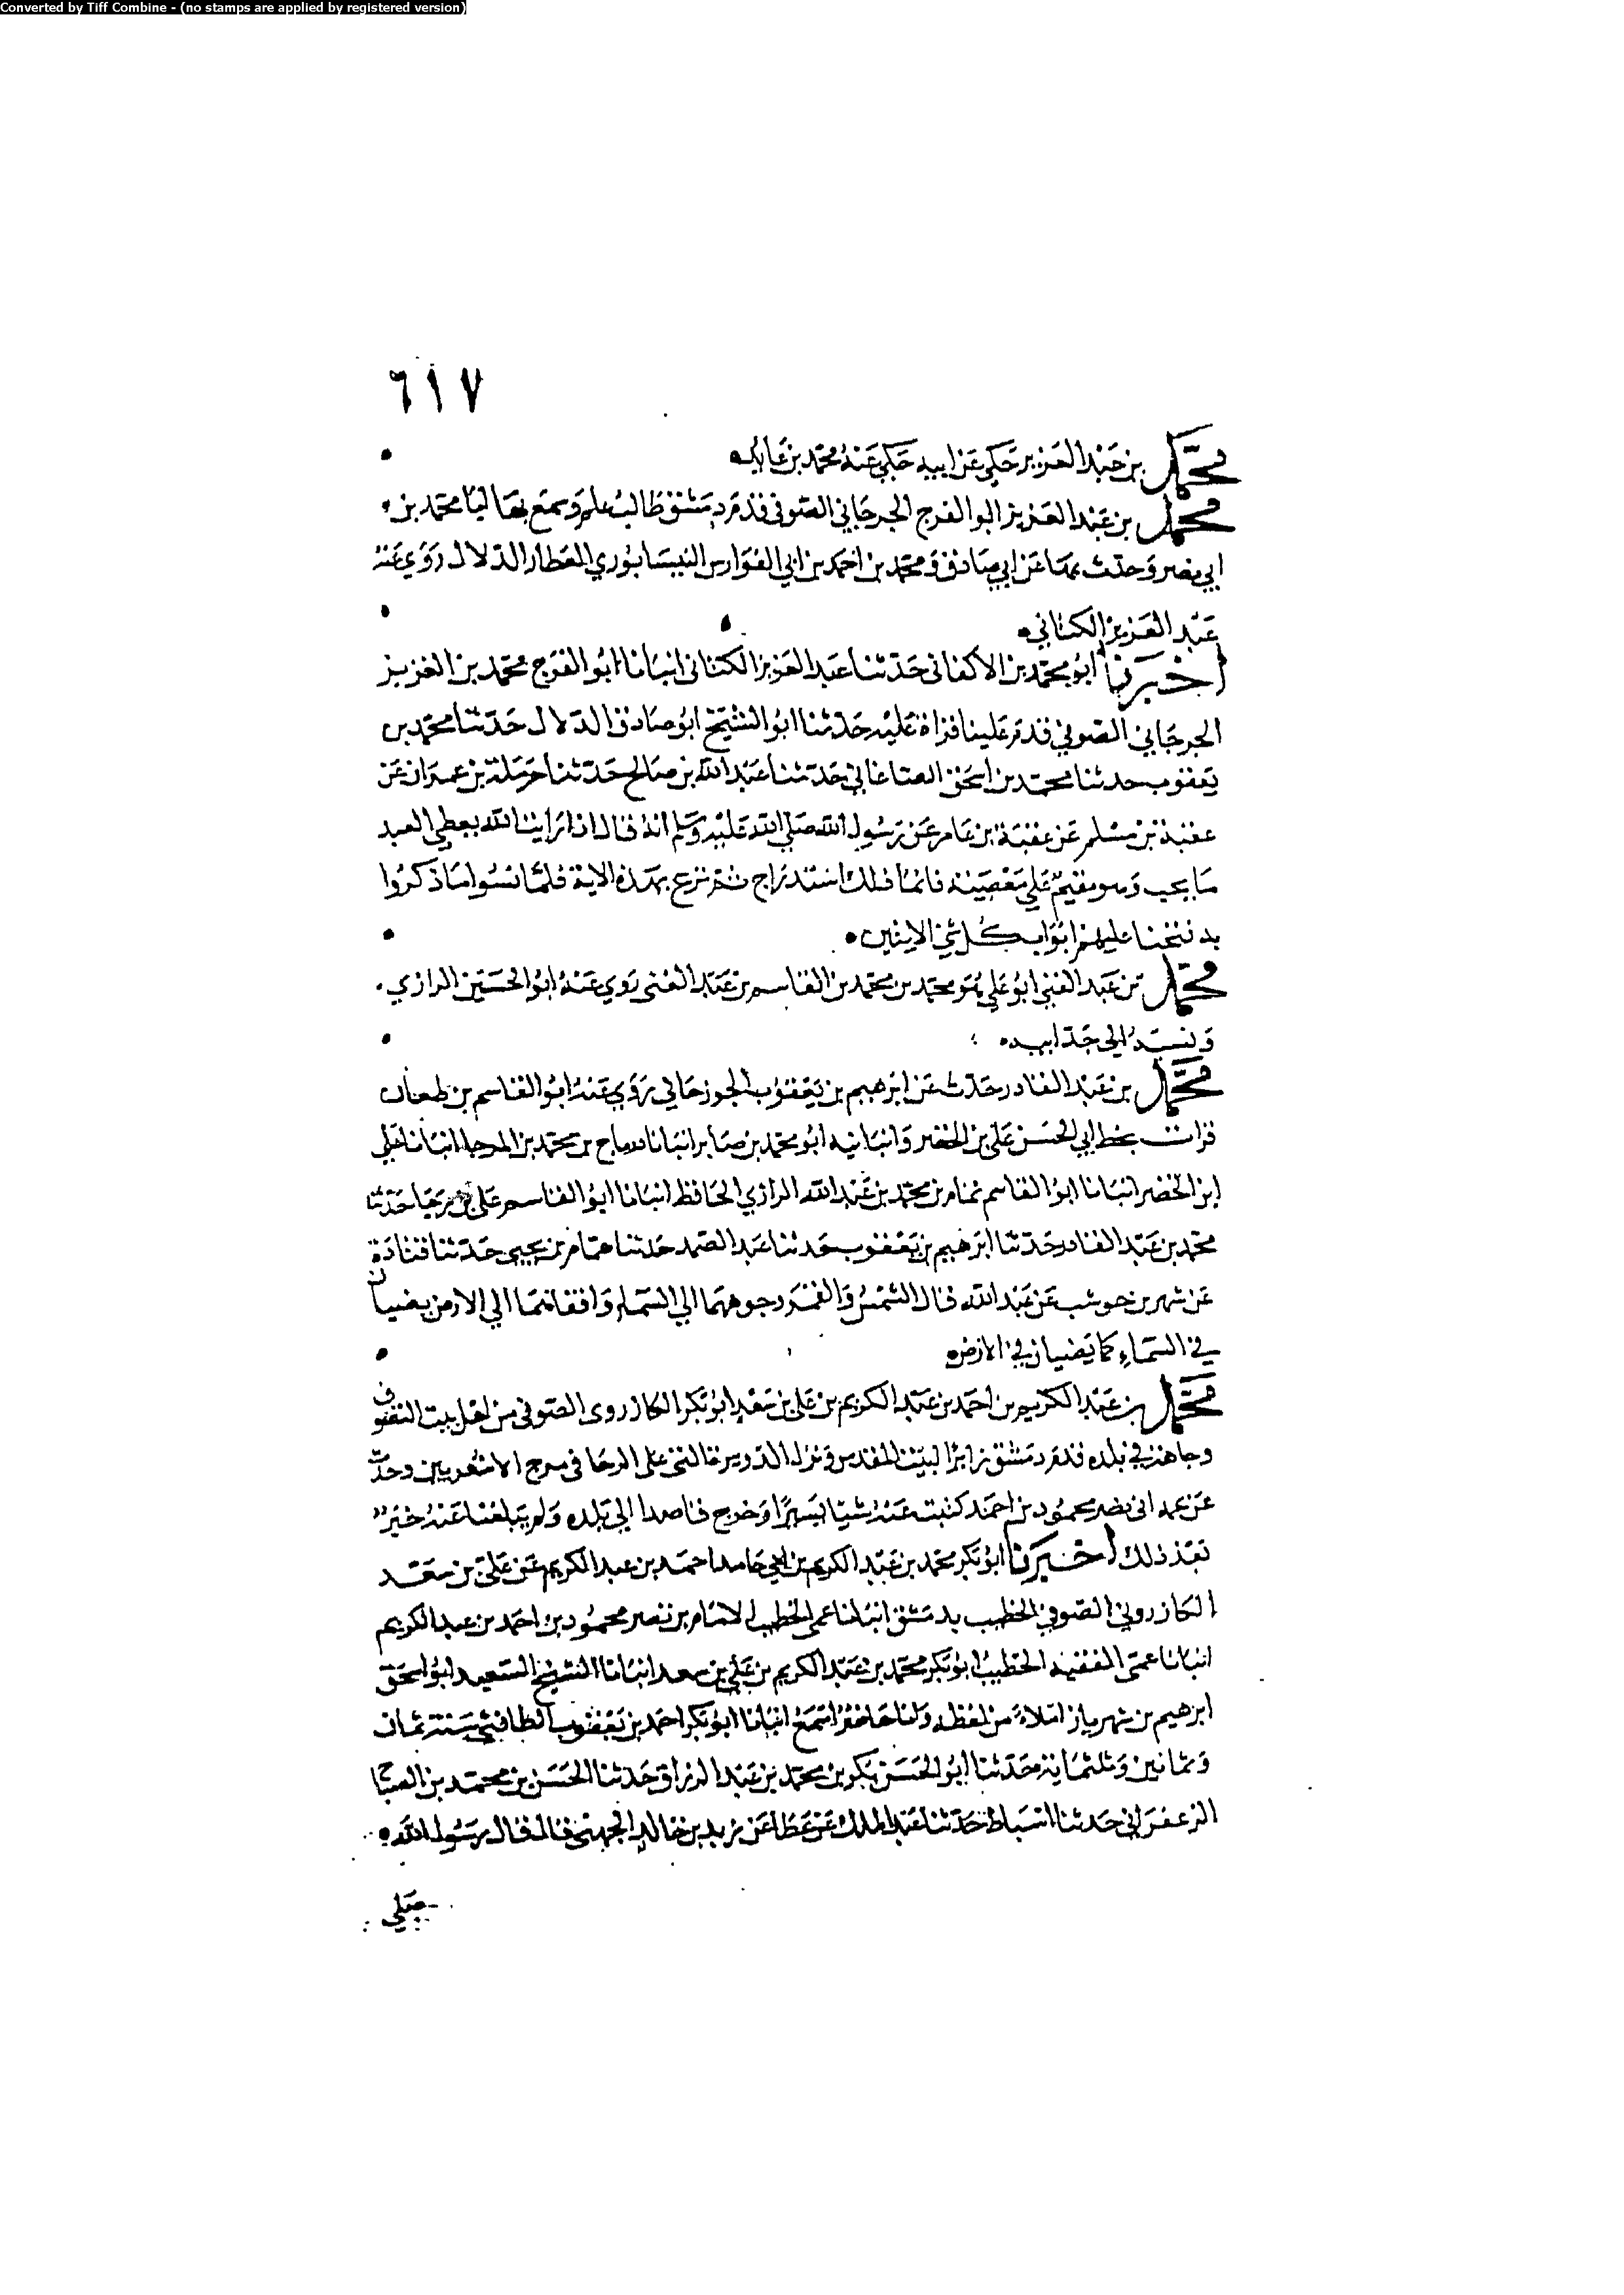 Converted by Tiff Combine - (no stamps are applied by registered version)
٦١٧
محمد بن عبد العزيز حكى عن ابيه حكى عنه محمد بن عايذ
محمد بن عبد العزيز ابو الفرج الجرجاني الصوفي قدم دمشق طالب علم وسمع بها ابا محمد بن
ابي نصر وحدث بها عن ابي صادق محمد بن احمد بن ابي الفوارس النيسابوري العطار الدلال روى عنه
عبد العزيز الكتاني
اخبرنا ابو محمد بن الاكفاني حدثنا عبد العزيز الكتاني انبانا ابو الفرج محمد بن العزيز
الجرجاني الصوفي قدم علينا قراة عليه حدثنا ابو الشيخ ابو صادق الدلال حدثنا محمد بن
يعقوب حدثنا محمد بن اسحق الصاغاني حدثنا عبد الله بن صالح حدثنا حرملة بن عمران عن
عقبة بن مسلم عن عقبة بن عامر عن رسول الله صلى الله عليه وسلم انه قال اذا رايت الله يعطي العبد
ما يحب وهو مقيم على معصيته فانما ذلك استدراج ثم نزع بهذه الاية فلما نسوا ما ذكروا
به فتحنا عليهم ابواب كل شي الايتين
محمد بن عبد الغني ابو علي هو محمد بن محمد بن القاسم بن عبد الغني روى عنه ابو الحسين الرازي
ونسبه الى جد ابيه
محمد بن عبد القادر حدث عن ابرهيم بن يعقوب الجوزجاني روى عنه ابو القاسم بن طعان
قرات بخط ابي الحسن علي بن الخضر وانبانيه ابو محمد بن صابر انبانا بن محمد بن المرجا انبانا علي
ابن الخضر انبانا ابو القاسم تمام بن محمد بن عبد الله الرازي الحافظ انبانا ابو القاسم علي بن رجا حدثنا
محمد بن عبد القادر حدثنا ابرهيم بن يعقوب حدثنا عبد الصمد حدثنا همام بن يحيى حدثنا قتادة
عن شهر بن حوشب عن عبد الله قال الشمس والقمر وجوههما الي السماء واقفاتهما الي الارض يضيان
في السماء كما يضيان في الارض
محمد بن عبد الكريم بن احمد بن عبد الكريم بن علي بن سعد ابو بكر الكازروني الصوفي من اهل بيت التصوف
وجاهة في بلده قدم دمشق زايرا لبيت المقدس ونزل الدويرة التي على الرحا في مرج الاشعريين وحدث
عن عمه ابي نصر محمود بن احمد كتبت عنه شيا يسيرا وخرج قاصدا الي بلده ولم يبلغنا عنه خبر
بعد ذلك اخبرنا ابو بكر محمد بن عبد الكريم بن ابي حامد احمد بن عبد الكريم عن علي بن سعد
الكازروني الصوفي الخطيب بدمشق انبانا عمى الخطيب الامام بن نصر محمود بن احمد بن عبد الكريم
انبانا عمى الفقيه الخطيب ابو بكر محمد بن عبد الكريم بن علي بن سعد انبانا الشيخ السعيد ابو اسحق
ابرهيم بن شهريار املاء من لفظه وانا حاضر اسمع انبانا ابو بكر احمد بن يعقوب سنة ثمان
وثمانين وثلثماية حدثنا ابو الحسن بكر بن محمد بن عبد الرزاق حدثنا الحسن بن محمد بن الصباح
الزعفراني حدثنا اسباط حدثنا عبد الملك عن عطا عن زيد بن خالد الجهني قال قال رسول الله
صلى